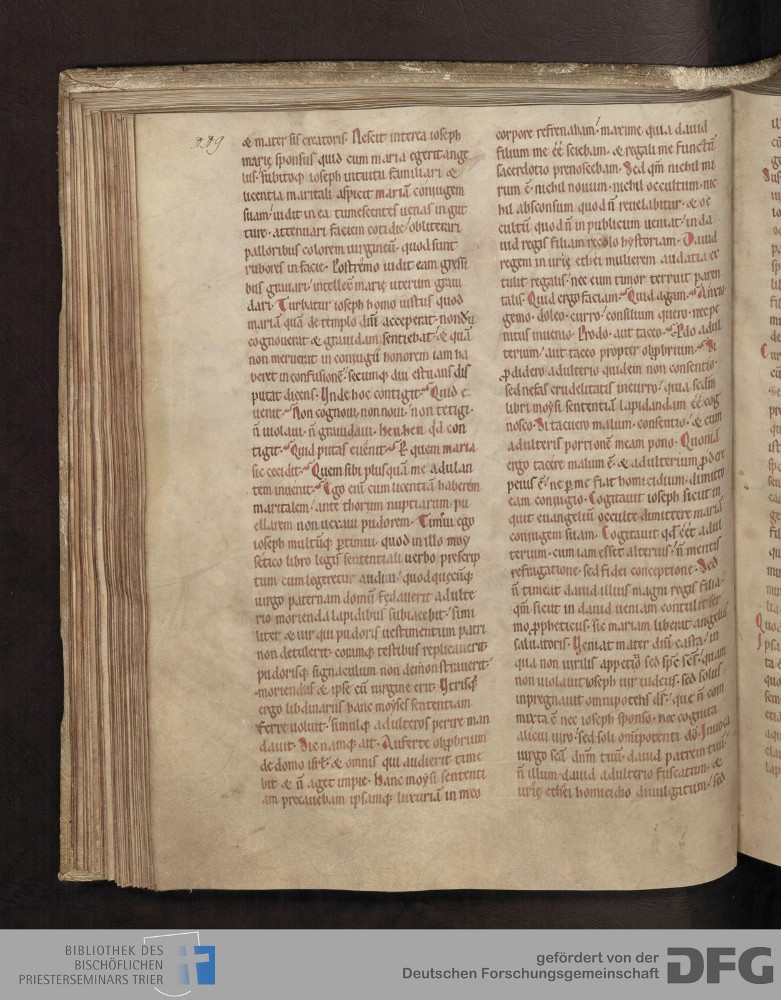 & mater sis creatoris. Nescit interea ioseph
marię sponsus quid cum maria egerit ange
lus. subitoq; ioseph intuitu familiari &
licentia maritali aspicit mariā coniugem
suam. uidit in ea tumescentes uenas in gut
ture. attenuari faciem cotidie. oblitterari
palloribus colorem uirgineū. quod sunt
rubores in facie. Postremo uidit eam gressi
bus grauari. intellexit marię uterum graui
dari. Turbatur ioseph homo iustus quod
mariā quā de templo dn̄i acceperat. nondū
cognouerat & grauidam sentiebat. & quā
non meruerit in coniugii honorem iam ha
beret in confusionē. secumq; diu estuans dis
putat dicens. Vnde hoc contigit. Quid e
uenit. Non cognoui. non noui. non tetigi.
n̄ uiolaui. n̄ grauidaui. heu heu qd con
tigit. Quid putas euenit. Per quem maria
sic cecidit. Quem sibi plusquā me adulan
tem inuenit. Ego eni cum licentiā haberem
maritalem. ante thorum nuptiarum. pu
ellarem non uexaui pudorem. Timui ego
ioseph multūq; ptimui. quod in illo moy
setico libro legis sententiali uerbo prescrip
tum cum legeretur audiui. quod quecūq;
uirgo paternam domū fedauerit adulte
rio morienda lapidibus subiacebit. simi
liter & uir qui pudoris uestimentum patri
non detulerit. eorumq; testibus replicauerit
pudorisq; signaculum non demonstrauerit.
moriendas & ipse cū uirgine erit. Vtrisq;
ergo libidinariis hanc moyses sententiam
ferre uoluit. simulq; adulteros perire man
dauit. Sic namq; ait. Auferte obprobrium
de domo isrl. & omnis qui audierit time
bit & n̄ aget impie. Hanc moysi sententi
am precauebam ipsamq; luxuriā in meo
corpore refrenabam. maxime quia dauid
filium me ēē sciebam. & regali me functū
sacerdotio prenoscebam. Sed qm̄ nichil mi
rum ē. nichil nouum. nichil occultum. nic
hil absconsum quod n̄ reuelabitur. & oc
cultū quod n̄ in publicum ueniat. in da
uid regis filiam recolo hystoriam. Dauid
regem in urię ethei mulierem audatia ex
tulit regalis. nec eum timor terruit paren
talis. Quid ergo faciam. Quid agam. Anxio.
gemo. doleo. curro. consilium quero. nec pe
nitus inuenio. Prodo. aut taceo. Pdo adul
terium. aut taceo propter obpbrium. Si
pdidero adulterio quidem non consentio.
sed nefas crudelitatis incurro. quia scdm
libri moysi sententiā lapidandam ēē cog
nosco. Si tacuero malum. consentio. & cum
adulteris portionē meam pono. Quoniā
ergo tacere malum ē. & adulterium pdere
peius ē. ne p me fiat homicidium. dimitto
eam coniugio. Cogitauit ioseph sicut in
quit euangeliū occulte dimittere mariā
coniugem suam. Cogitauit qd ēēt adul
terium. cum iam esset alterius. n̄ mentis
refragatione. sed fidei conceptione. Sed
n̄ timeat dauid illius magni regis filia.
qm̄ sicut in dauid ueniam contulit ser
mo ppheticus. sic mariam liberat angelus
saluatoris. Veniat mater dn̄i casta. in
qua non uirilis appetiō sed sps scs. quam
non uiolauit ioseph uir iudeus. sed solus
inpregnauit omnipotens ds. quę n̄ com
mixta ē nec ioseph sponso. nec cognita
alicui uiro. sed soli omipotenti do. Inuoca
uirgo scā dnm tuū. dauid patrem tuū.
n̄ illum dauid adulterio fuscatum. &
urię ethei homicidio diuulgatum. sed
BIBLIOTHEK DES
BISCHÖFLICHEN
PRIESTERSEMINARS TRIER
gefördert von der
Deutschen Forschungsgemeinschaft
DFG